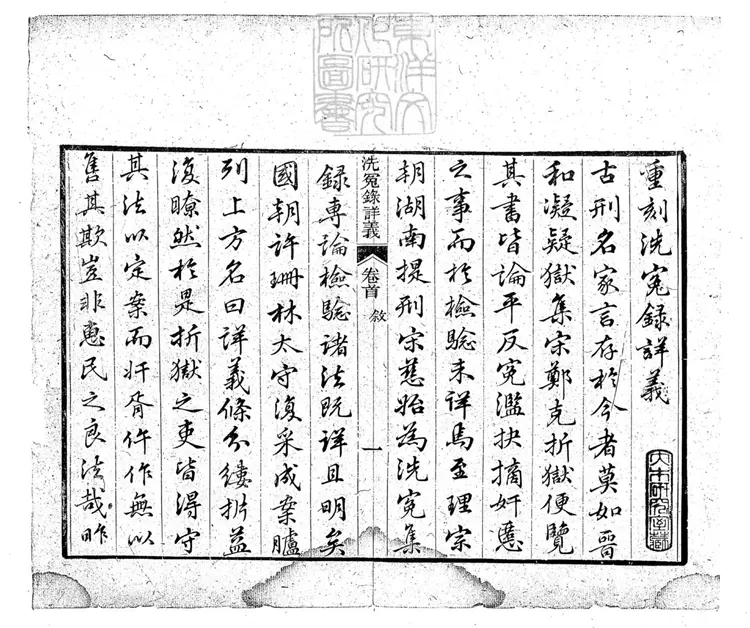 重刻洗冤錄詳義
古刑名家言存於今者莫如晉
和凝疑獄集宋鄭克折獄便覽
其書皆論平反冤濫抉摘奸慝
之事而於檢驗未詳焉至理宗
朝湖南提刑宋慈始為洗冤集
洗冤錄詳義
卷首 敘
一
錄專論檢驗諸法既詳且明矣
國朝許珊林太守復采成案臚
列上方名曰詳義條分縷析益
復瞭然於是折獄之吏皆得守
其法以定案而奸胥仵作無以
售其欺豈非惠民之良法哉昨
東洋文
化研究
所圖書
大木研究室藏